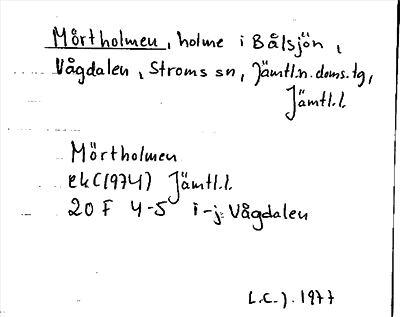 Mörtholmen, holme i Bålsjön,
Vågdalen, Ströms sn, Jämtl.n.doms.tg,
Jämtl.l.
Mörtholmen
ekC(1974) Jämtl.l.
20 F 4-5 i-j: Vågdalen
L.C.J. 1977